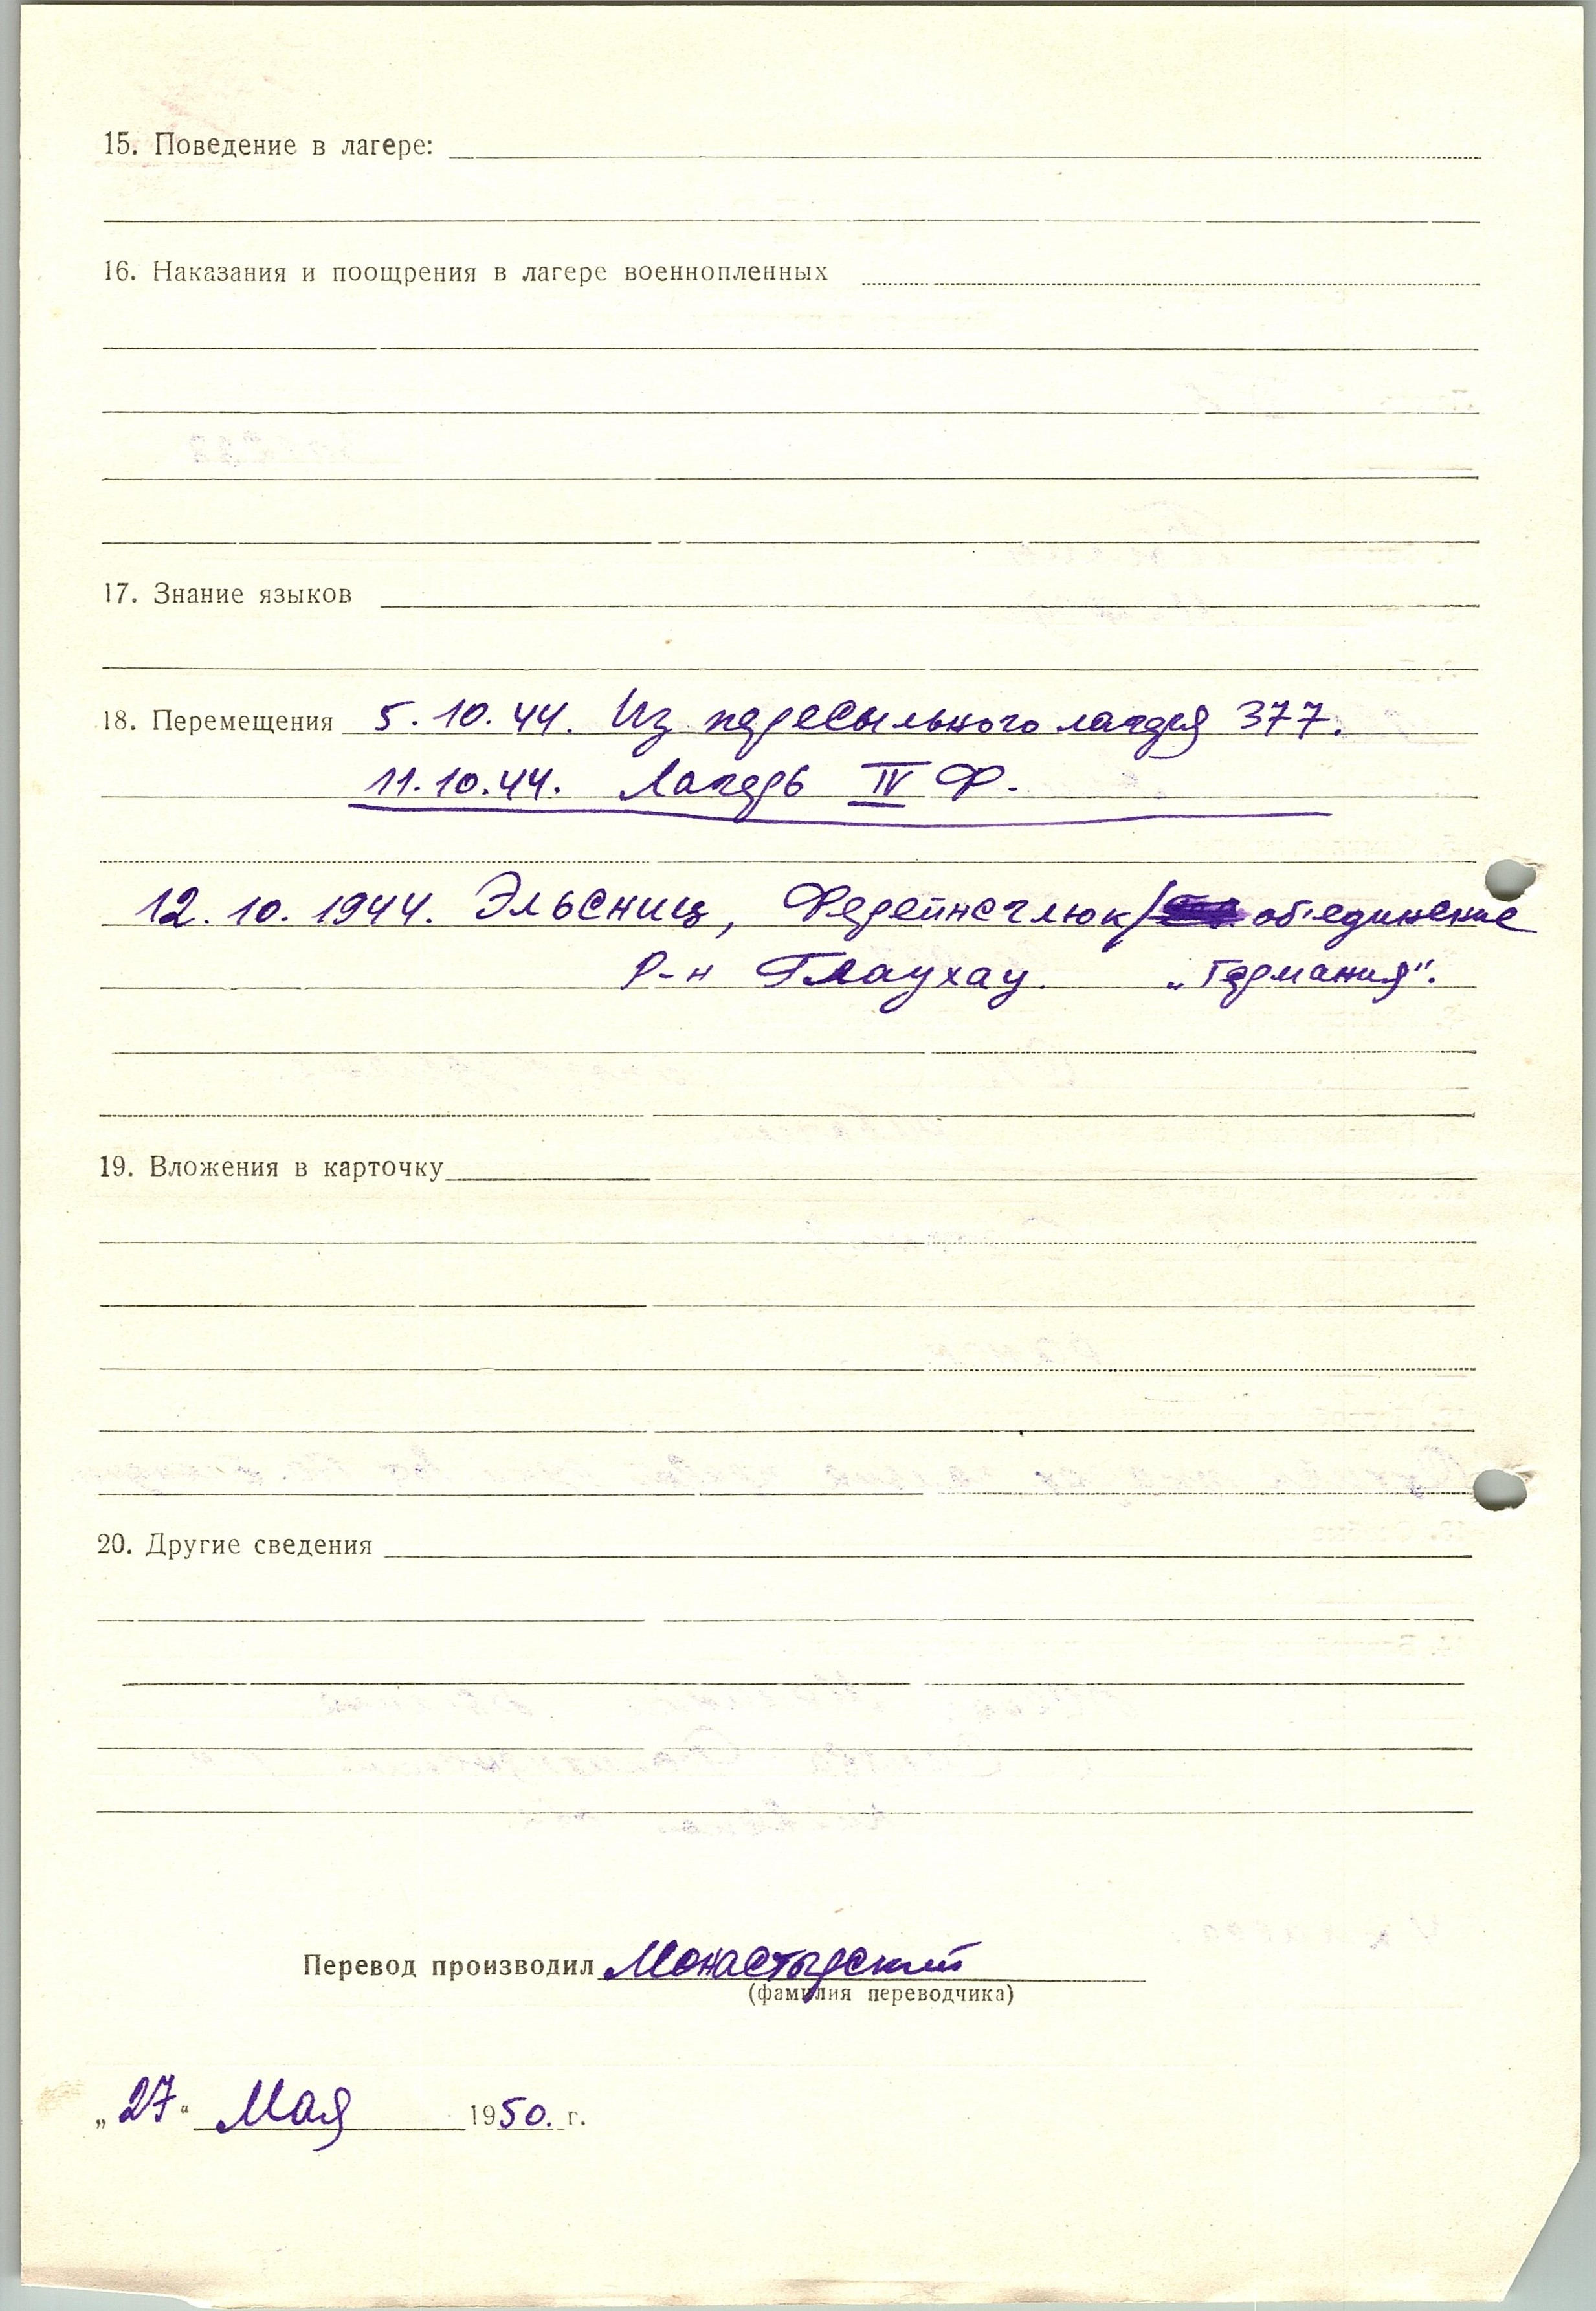 15. Поведение в лагере:
16. Наказания и поощрения в лагере военнопленных
17. Знание языков
18. Перемещения 5. 10. 44. Из пересыльного лагеря 377.
11.10.44. Лагерь IV Ф.
12. 10. 1944. Эльсниц, Ферейнсглюк/ об'единение
Р-н Глаухау. „Германия".
19. Вложения в карточку
20. Другие сведения
Перевод производил Монастырский
(фамилия переводчика)
„27" Мая 1950. г.